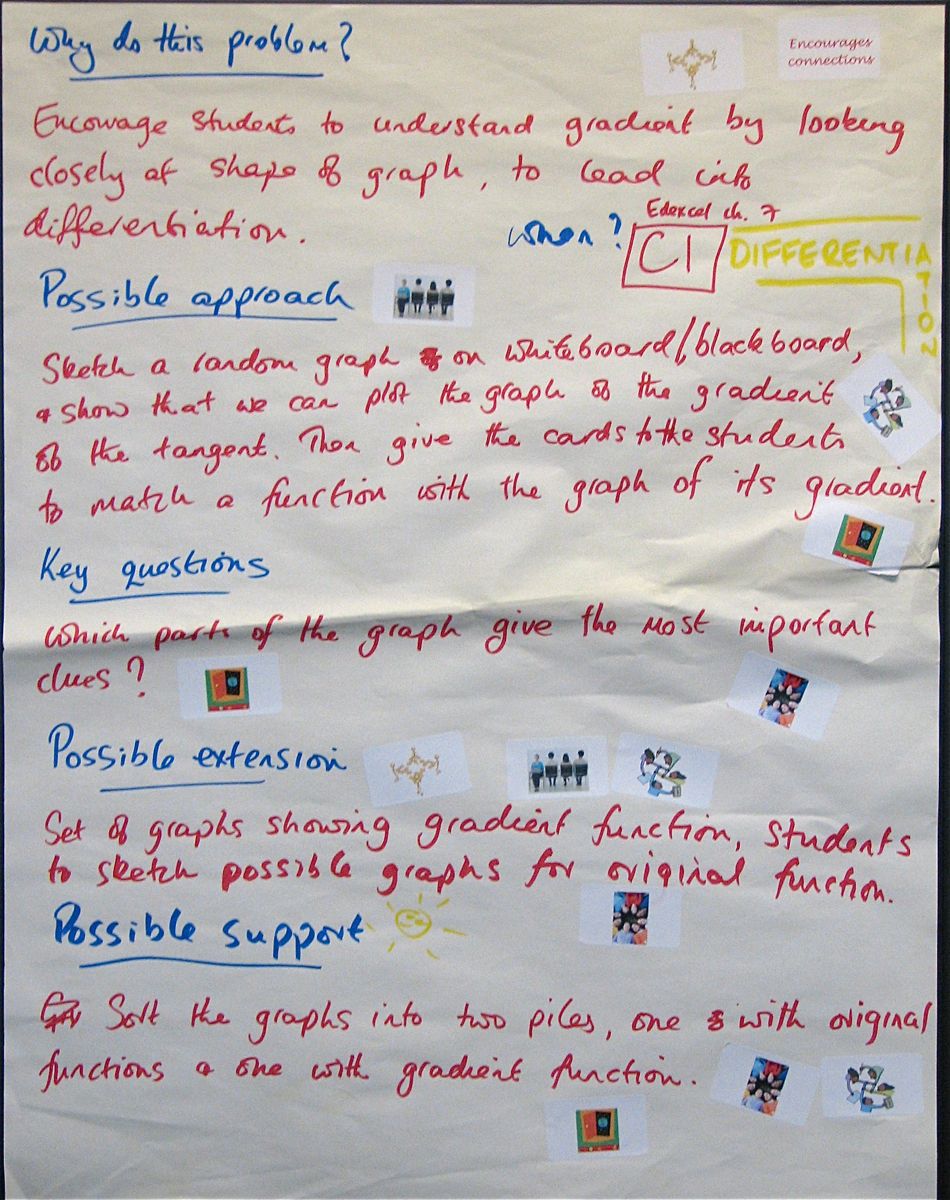 Why do this problem?
Encourages
connections
Encourage students to understand gradient by looking
closely at shape of graph, to lead into
differentiation.
When?
Edexcel ch. 7
C1
DIFFERENTIATION
Possible approach
Sketch a random graph on whiteboard/blackboard,
& show that we can plot the graph of the gradient
of the tangent. Then give the cards to the students
to match a function with the graph of its gradient.
Key questions
Which parts of the graph give the most important
clues?
Possible extension
Set of graphs showing gradient function, students
to sketch possible graphs for original function.
Possible support
Sort the graphs into two piles, one with original
functions & one with gradient function.